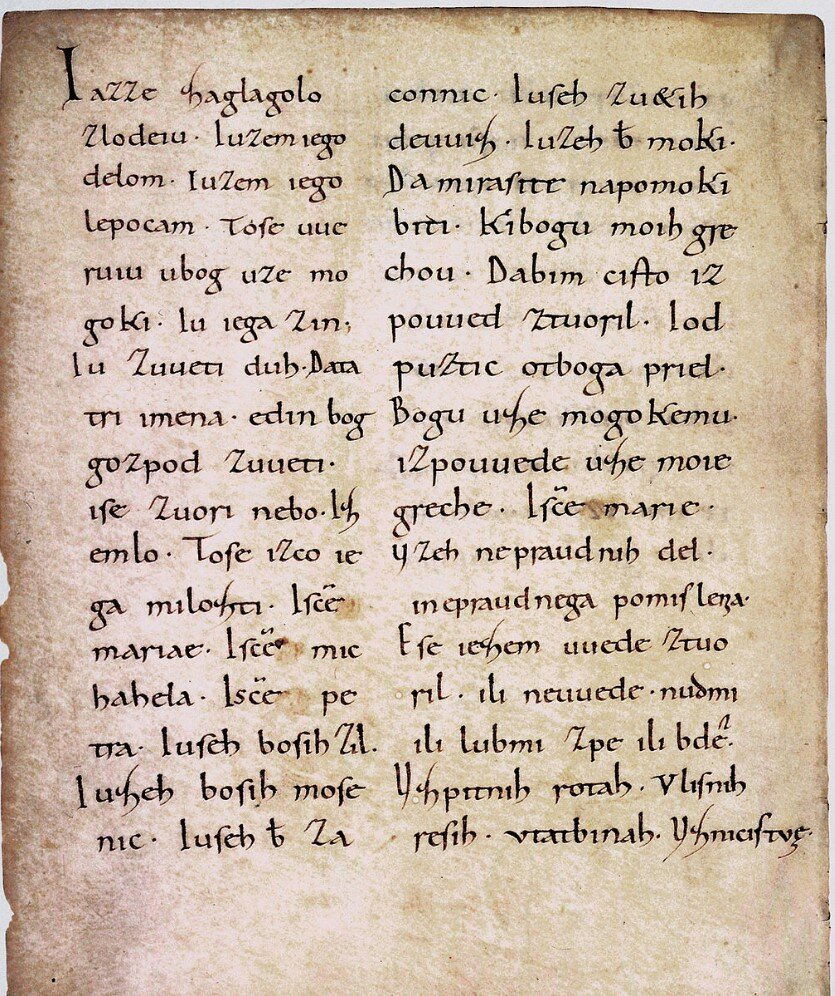 Iazze zaglagolo
zlodeiu · Iuzem iego
delom · Iuzem iego
lepocam · Tose uue
ruiu ubog uze mo
goki · Iu iega zin;
Iu zuueti duh · Data
tri imena · edin bog
gozpod zuueti ·
ise zuori nebo · Iz
emlo · Tose izco ie
ga milozti · Isc̄e
mariae · Isc̄e mic
hahela · Isc̄e pe
tra · Iuseh bosih zil ·
Iuzeh bosih mose
nic · Iuseh b̄ za
connic · Iuseh zu&ih
deuuiz · Iuzeh b̄ moki ·
Da mirasite napomoki
biti · Kibogu moih gre
chou · Dabim cisto iz
pouued ztuoril · Iod
puztic otboga priel ·
Bogu uze mogokemu ·
izpouuede uze moie
greche · Isc̄e marie ·
yzeh nepraudnih del ·
inepraudnega pomislena ·
Ese iezem uuede ztuo
ril · ili neuuede · nudmi
ili lubmi zpe ili bde ·
Vzpitnih rotah · Vlisnih
resih · vtatbinah · Vznicistuę ·